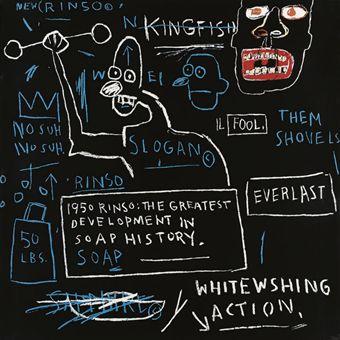 NEW(RINSO©
N KINGFISH
W EI
IL FOOL.
THEM
SHOVELS
NO SUH.
NO SUH.
SLOGAN©
RINSO
1950 RINSO: THE GREATEST
DEVELOPMENT IN
SOAP HISTORY.
SOAP
EVERLAST
50
LBS.
WHITEWSHING
ACTION.